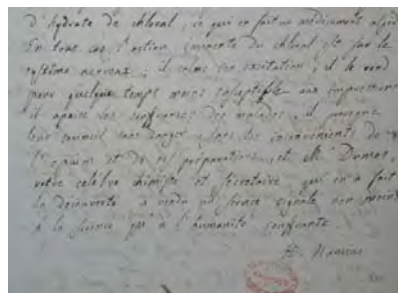 d'hydrate de chloral, ce qui en fait un médicament
En tous cas l'action du chloral est sur le
système nerveux; il calme son excitation, il le rend
pour quelque temps moins susceptible aux impressions
il apaise les souffrances des malades, il procure
leur sommeil sans danger sans les inconvénients de
l'opium et de ses préparations, et Mr Dumas,
votre célèbre chimiste et Secrétaire qui en a fait
la découverte a rendu un service signalé non moins
à la Science qu'à l'humanité souffrante.